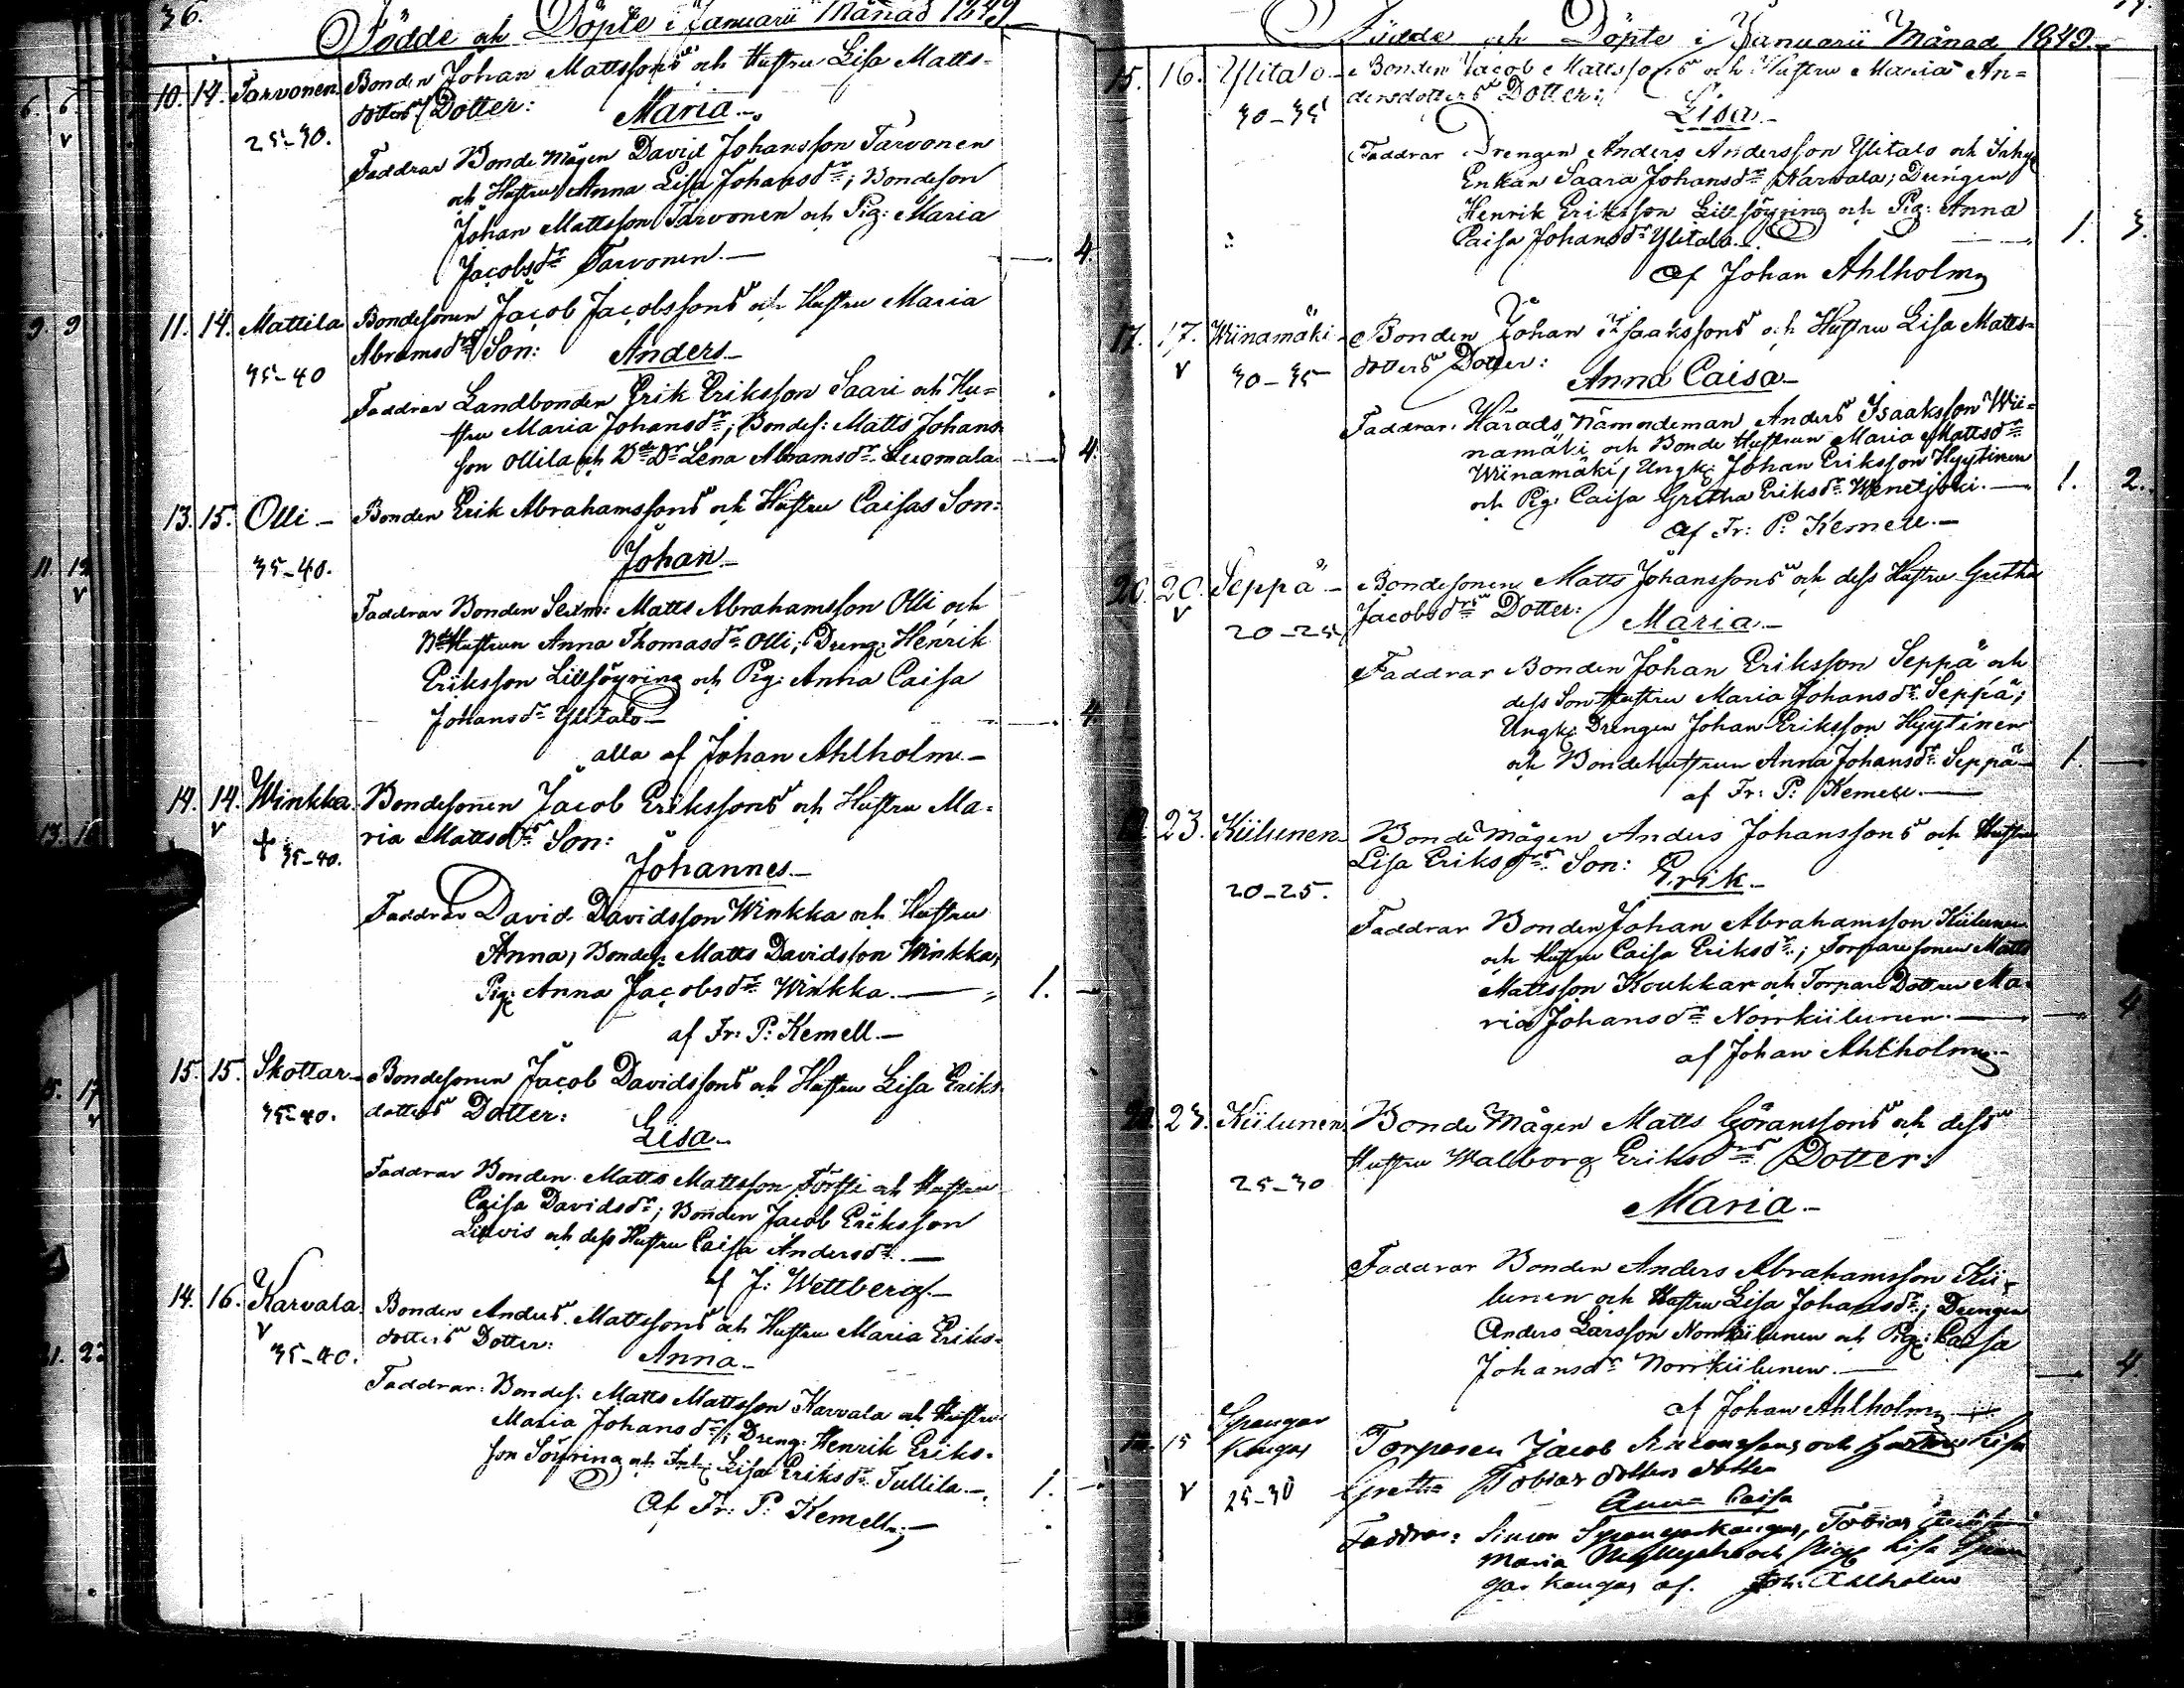 36.
Födde och Döpte i Januarii Månad 1849
6. 6. v
9. 9
11. 12 v
13. 15
15. 17 v
21. 23
10. 14. Tarvonen Bonden Johan Mattssons och Hustru Lisa Matts-
25-30. dotters Dotter: Maria.-
Faddrar Bonde Mågen David Johansson Tarvonen
och Hustru Anna Lisa Johansdr; Bondeson
Johan Mattsson Tarvonen och Pig: Maria
Jacobsdr Tarvonen.- 4.
11. 14. Mattila Bondesonen Jacob Jacobssons och Hustru Maria
35-40 Abramsdrs Son: Anders-
Faddrar Landbonden Erik Eriksson Saari och Hu-
stru Maria Johansdr; Bondes: Matts Johans-
son Ollila och Bde Dr Lena Abramsdr Luomala 4.
13. 15. Olli - Bonden Erik Abrahamssons och Hustru Caisas Son:
35-40. Johan-
Faddrar Bonden Sexm: Matts Abrahamsson Olli och
Hustrun Anna Thomasdr Olli; Dreng: Henrik
Eriksson Lillsöyring och Pig: Anna Caisa
Johansdr Ylitalo- 4.
alla af Johan Ahlholm.-
14. 14. v Winkka. Bondesonen Jacob Erikssons och Hustru Ma-
+ 35-40. ria Mattsdrs Son:
Johannes.-
Faddrar David Davidsson Winkka och Hustru
Anna, Bondes: Matts Davidsson Winkka,
Pig: Anna Jacobsdr Winkka.- 1. -
af Fr: P: Kemell.-
15. 15. Skottar- Bondesonen Jacob Davidssons och Hustru Lisa Eriks-
35-40. dotters Dotter:
Lisa-
Faddrar Bonden Matts Mattsson Försti och Hustru
Caisa Davidsdr; Bonden Jacob Eriksson
och dess Hustru Caisa Andersdr.-
af J: Wettberg.-
14. 16. Karvala Bonden Anders Mattssons och Hustru Maria Eriks-
v 35-40. dotters Dotter: Anna-
Faddrar: Bondes: Matts Mattsson Karvala och Hustru
Maria Johansdr; Dreng: Henrik Eriks-
son Söyring och Lisa Eriksdr Tullila.- 1. -
Af Fr: P: Kemell
Födde och Döpte i Januarii Månad 1849.-
15. 16. Ylitalo- Bonden Jacob Mattssons och Hustru Maria An-
30-35 dersdotters Dotter: Lisa.-
Faddrar Drengen Anders Andersson Ylitalo och
Enkan Saara Johansdr Karvala; Drengen
Henrik Eriksson Lillsöyring och Pig: Anna
Caisa Johansdr Ylitalo.- 1. 3.
af Johan Ahlholm
17. 17. Wiinamäki- Bonden Johan Isaakssons och Hustru Lisa Matts-
v 30-35 dotters Dotter:
Anna Caisa-
Faddrar: Härads Nämndeman Anders Isaaksson Wii-
namäki och Bonde Hustrun Maria Mattsdr
Wiinamäki, Ungk: Johan Eriksson Hyytinen
och Pig: Caisa Gretha Eriksdr Wenetjoki.- 1. 2.
af Fr: P: Kemell.-
20. 20. Seppä - Bondesonen Matts Johanssons och dess Hustru Gretha
v 20-25 Jacobsdrs Dotter: Maria.-
Faddrar Bonden Johan Eriksson Seppä och
dess Son Hustru Maria Johansdr Seppä;
Ungk: Drengen Johan Eriksson Hyytinen
och Bondehustrun Anna Johansdr Seppä- 1. -
af Fr: P: Kemell.-
23. Kiilunen- Bonde Mågen Anders Johanssons och Hustru
20-25. Lisa Eriksdrs Son: Erik.-
Faddrar Bonden Johan Abrahamsson Kiilunen
och Hustru Caisa Eriksdr; Torparesonen Matts
Mattsson Koukkar och Torpare Dottren Ma-
ria Johansdr Norrkiilunen.- 4
af Johan Ahlholm
23. Kiilunen Bonde Mågen Matts Göranssons och dess
25-30 Hustru Walborg Eriksdrs Dotter:
Maria.-
Faddrar Bonden Anders Abrahamsson Kii-
lunen och Hustru Lisa Johansdr; Drengen
Anders Larsson Norrkiilunen och Pig: Caisa
Johansdr Norrkiilunen.- 4.
af Johan Ahlholm
15 Spangar
kangas Torparen Jacob och Hustrus Lisa
v 25-30 Greta Tobias dotters dotter
Anna Caisa
Faddrar: Simon Spangarkangas, Tobias
Maria och Pig: Lisa Span
gar kangas af. Joh: Ahlholm